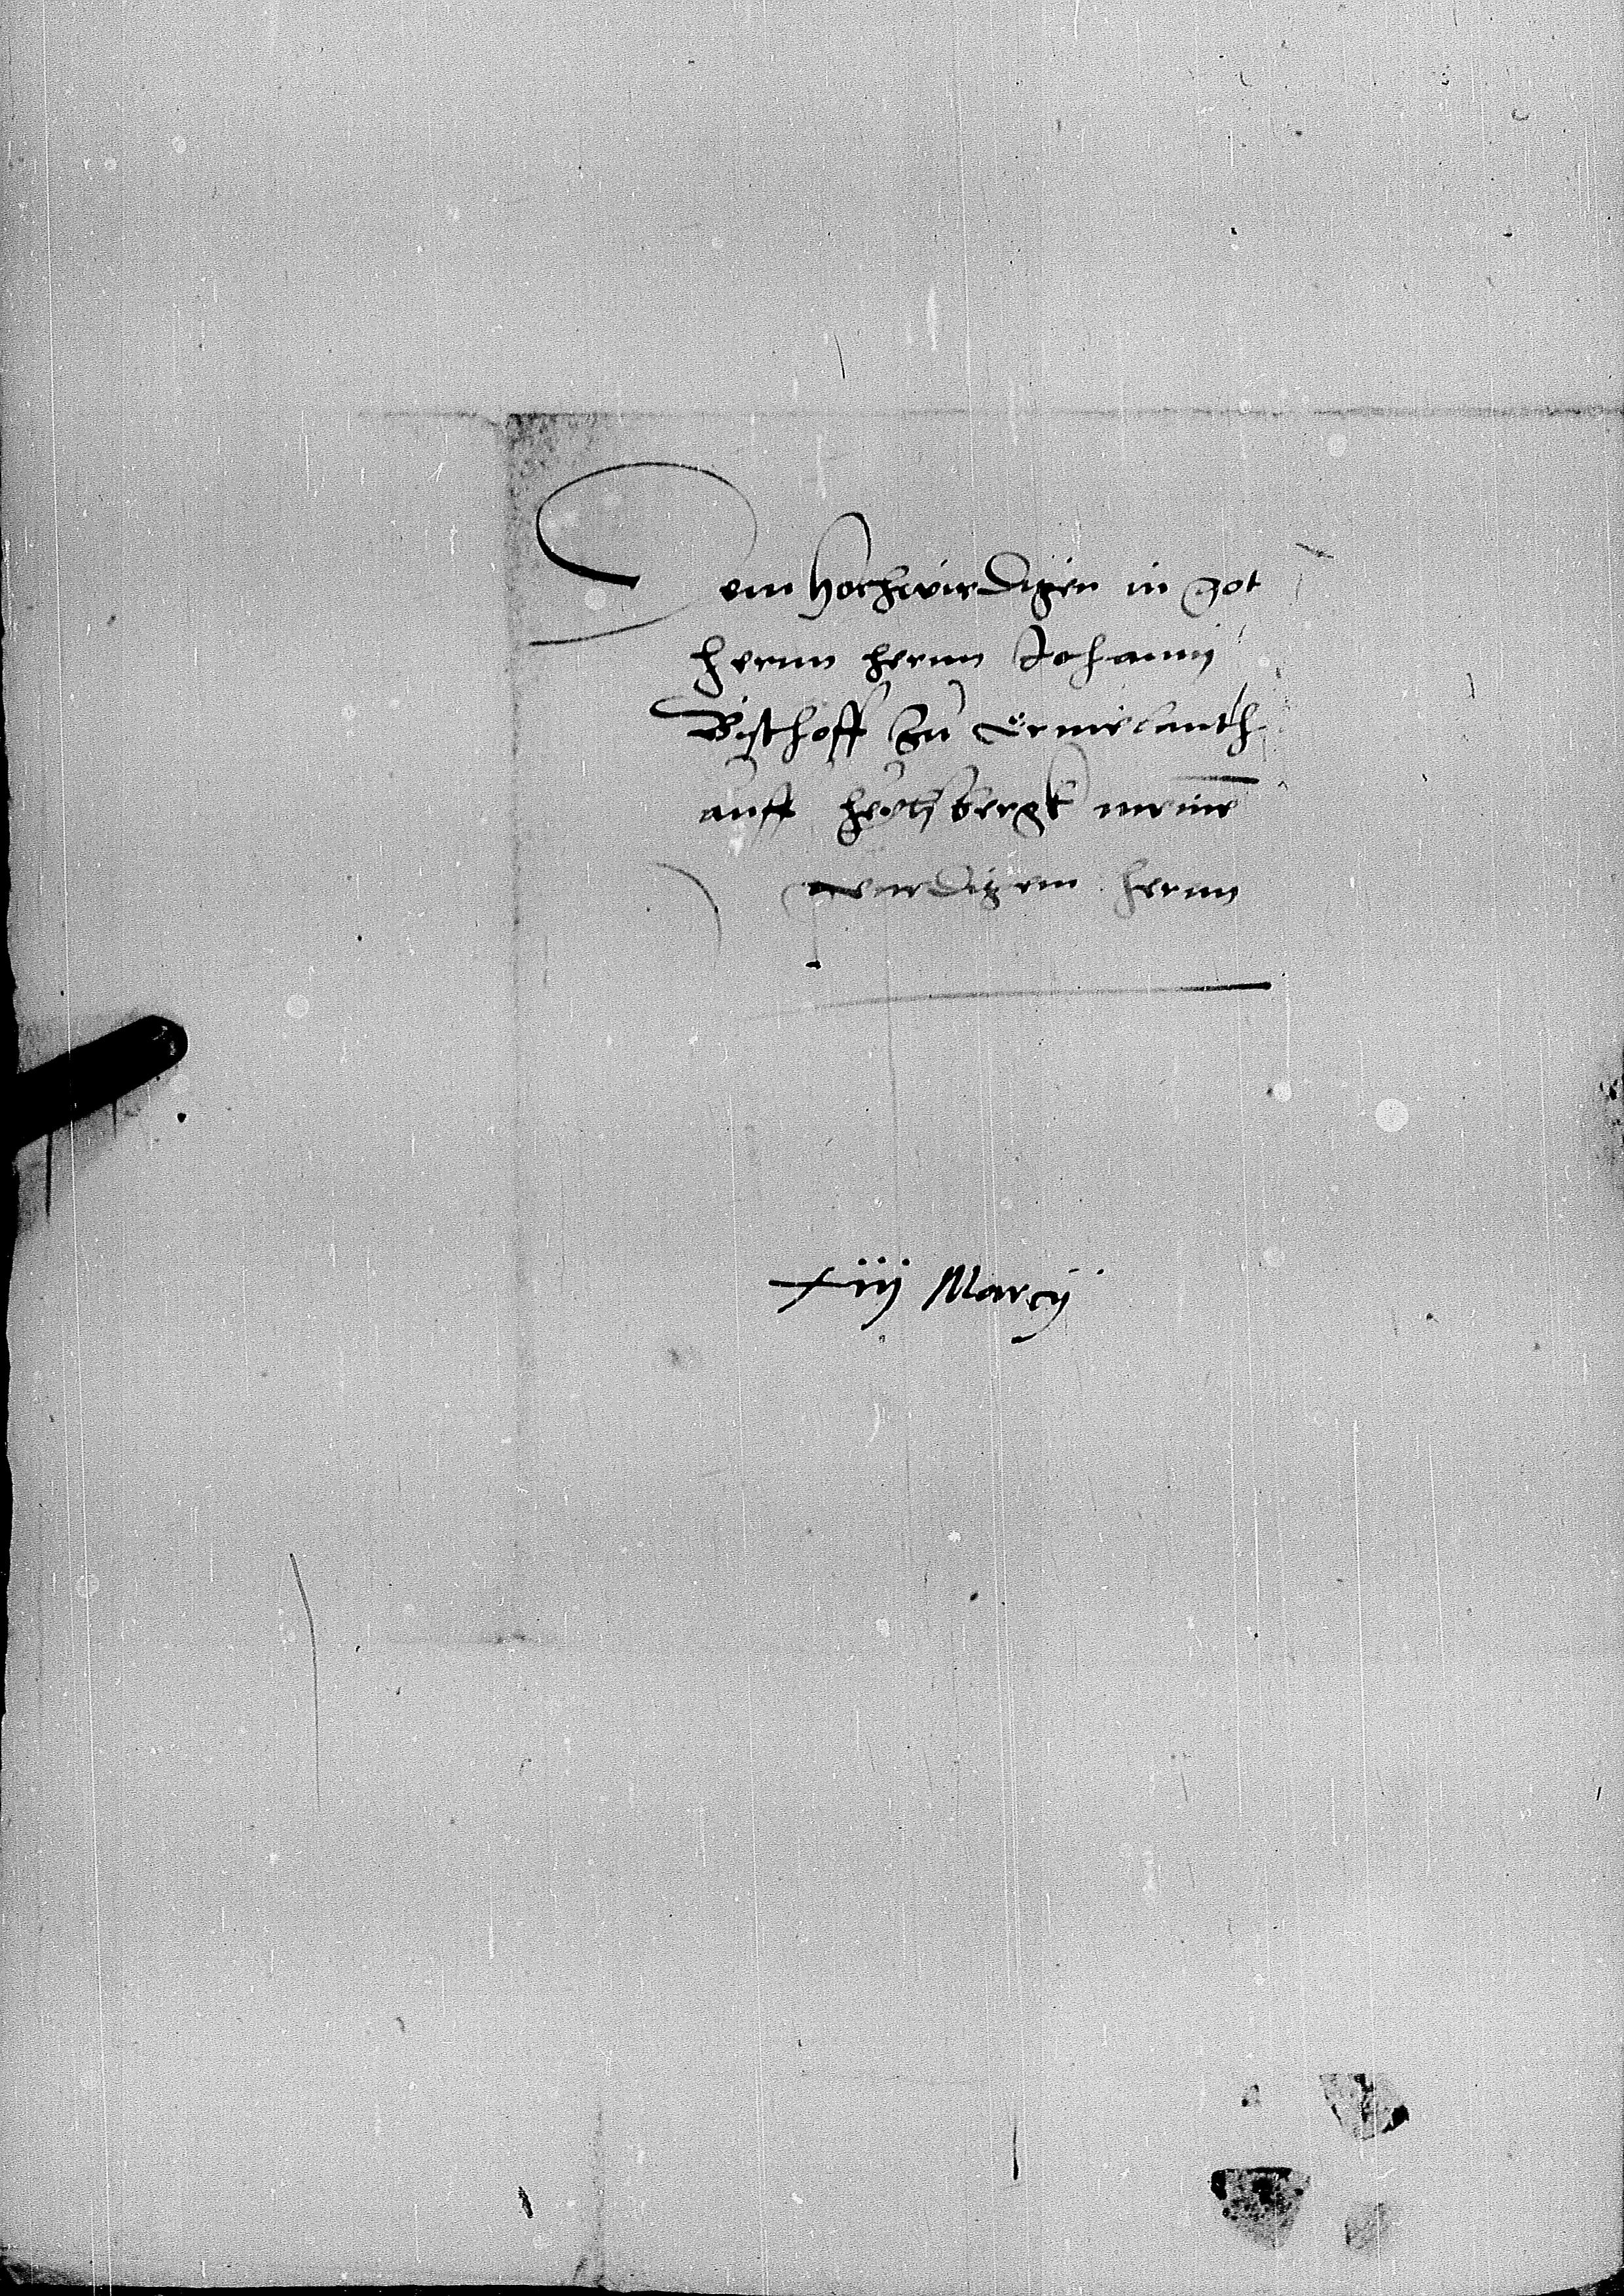 Dem hochwirdigen in got
hernn hernn Johannj
Bischoff zu Ermelanth
auff heylsbergk meinē
wirdigem hernn
xiij Marcij